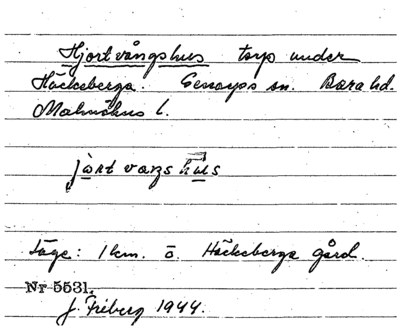 Hjortvångshus torp under
Häckeberga. Genarps sn. Bara hd.
Malmöhus l.
jòrt vaŋs hus
Läge: 1 km. ö. Häckeberga gård.
Nr 5531.
J. Friberg 1944.